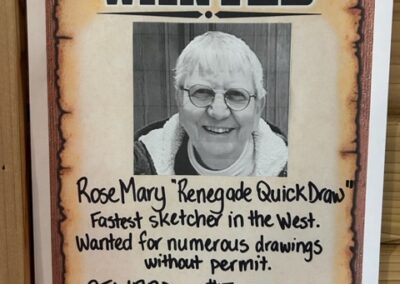 WANTED
RoseMary "Renegade QuickDraw"
Fastest sketcher in the West.
Wanted for numerous drawings
without permit.